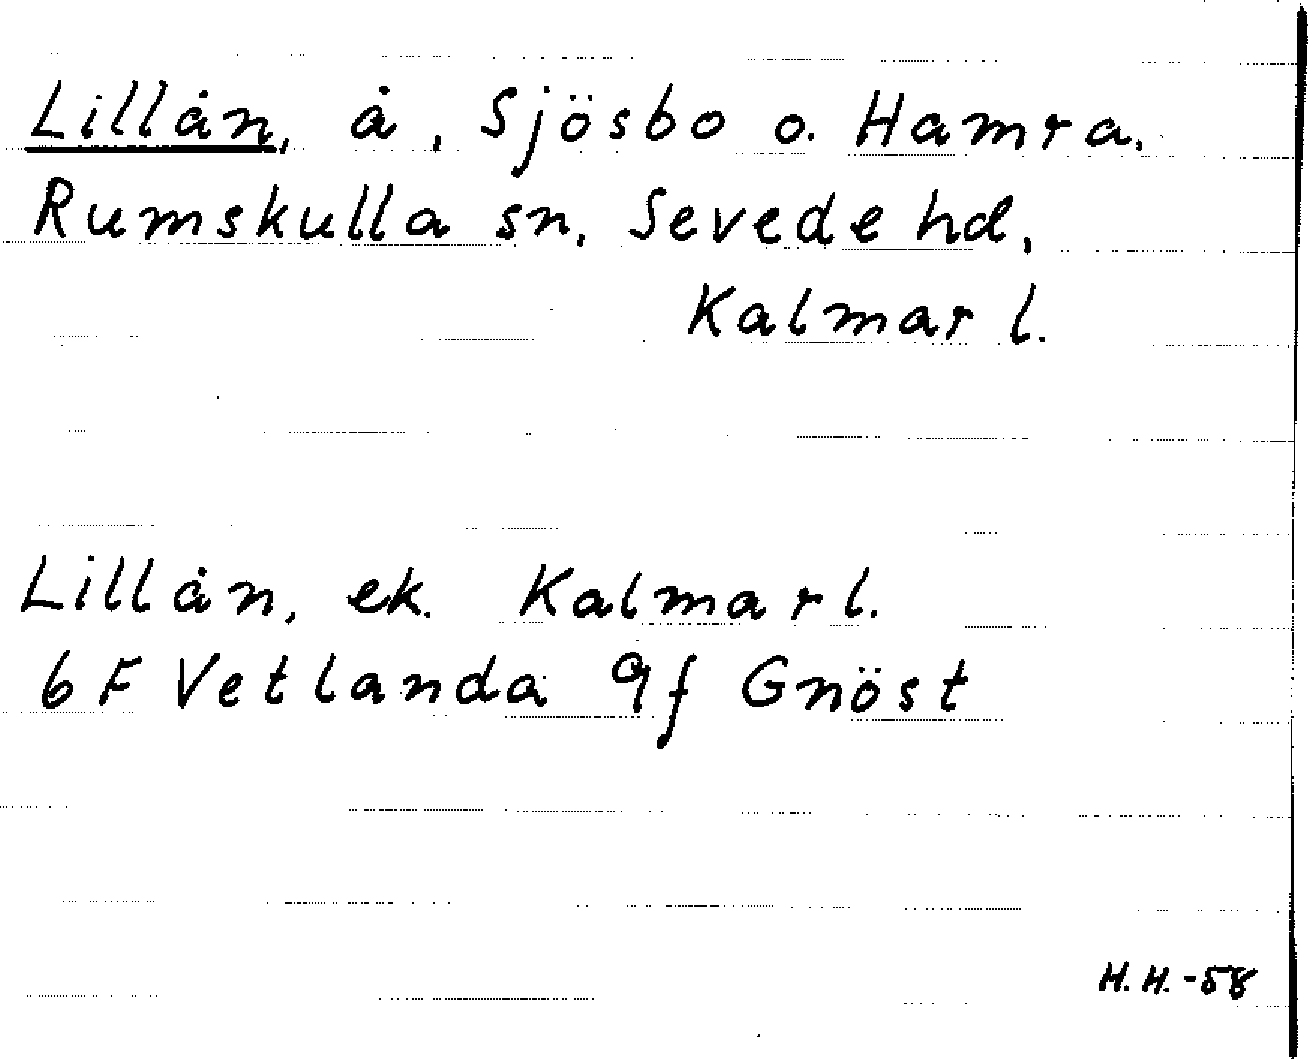 Lillån, å, Sjösbo o. Hamra.
Rumskulla sn, Sevede hd,
Kalmar l.
Lillån, ek. Kalmar l.
6 F Vetlanda 9f Gnöst
H.H.-58